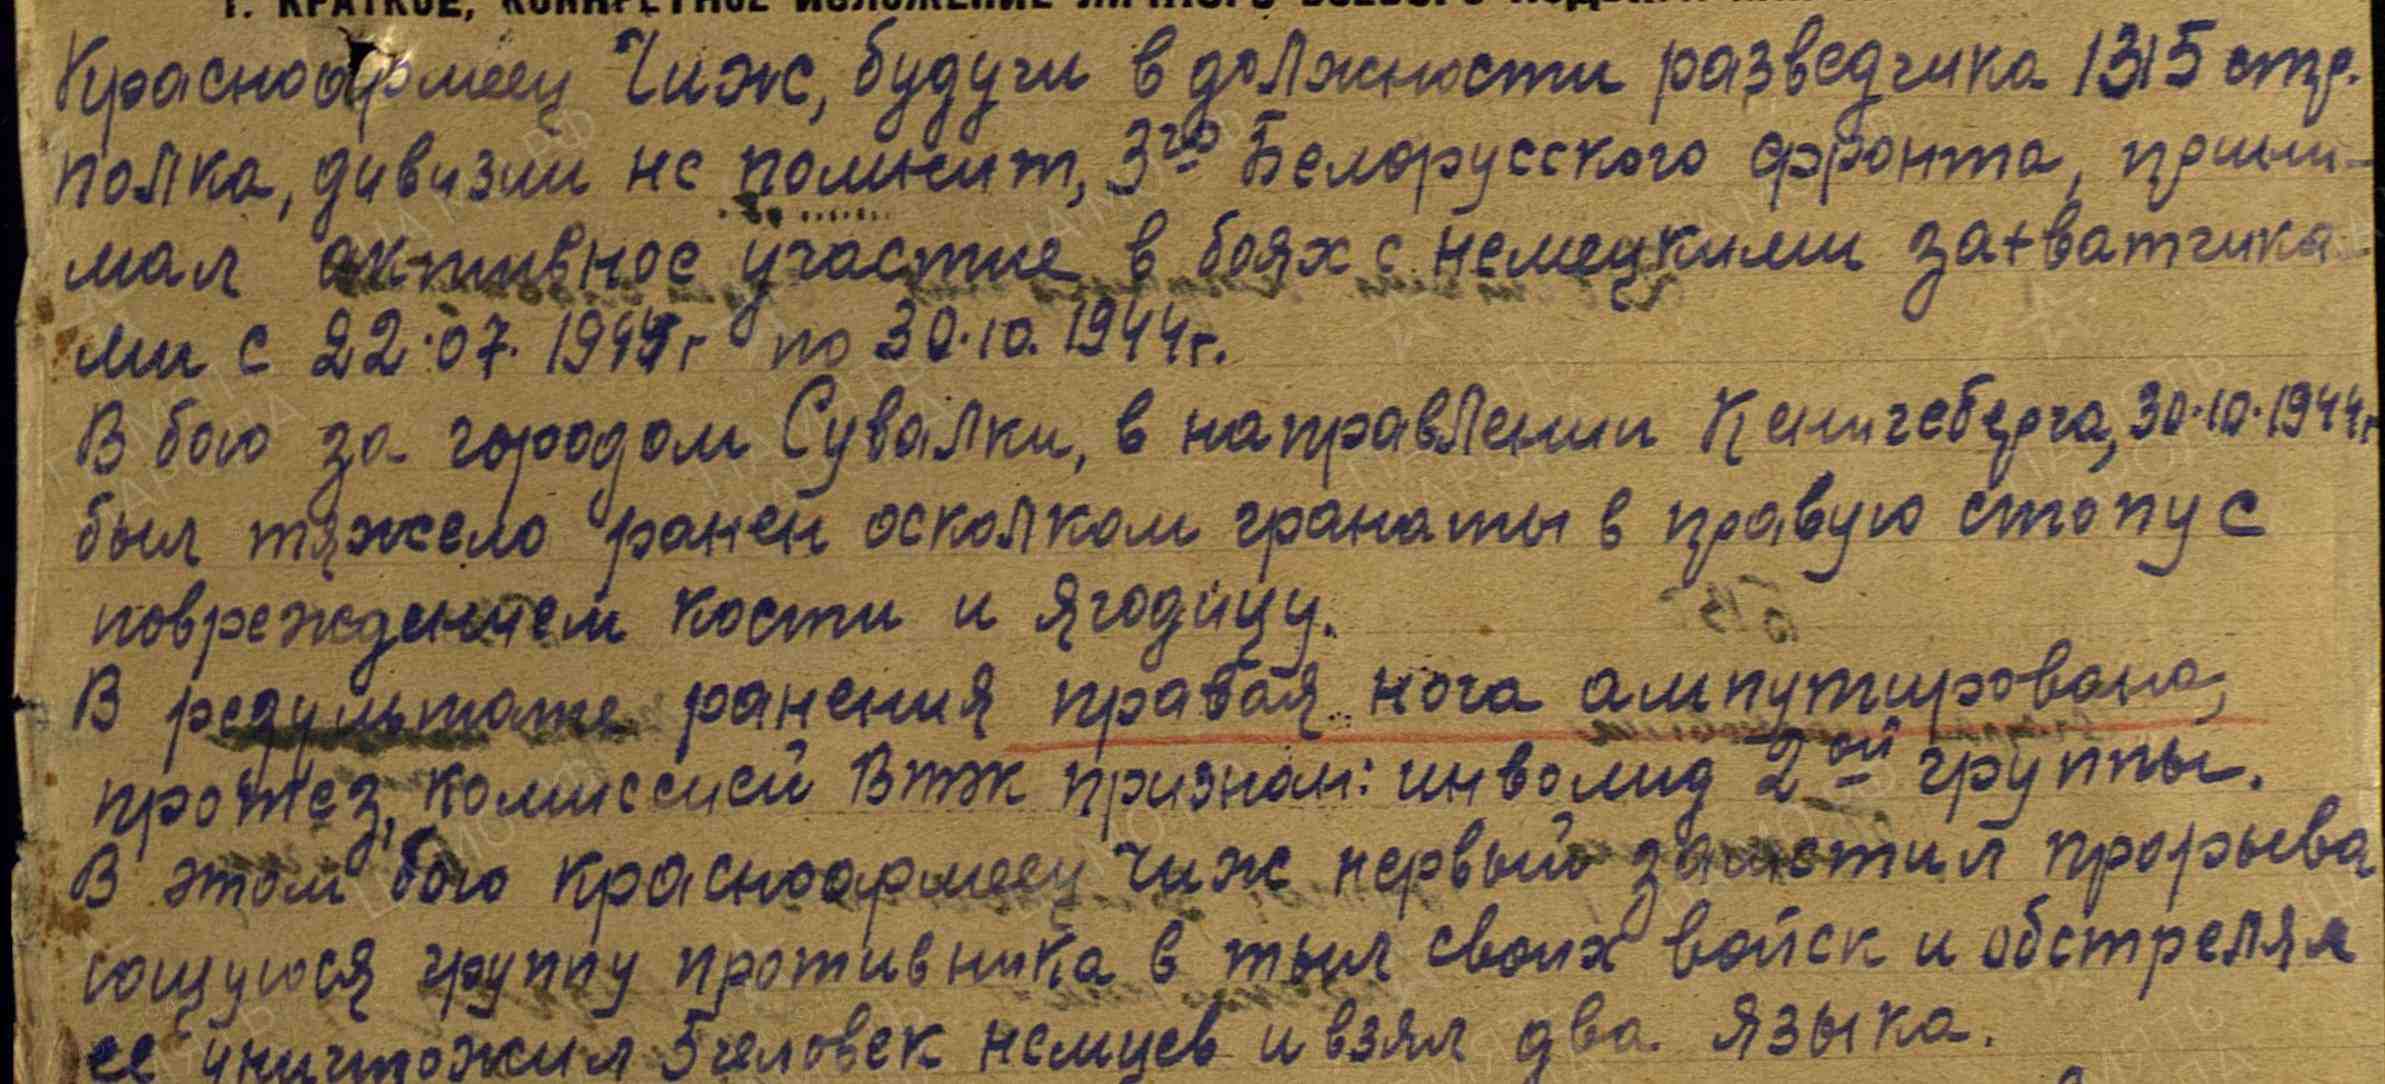 1. КРАТКОЕ, КОНКРЕТНОЕ ИЗЛОЖЕНИЕ ЛИЧНОГО БОЕВОГО
Красноармеец Чиж, будучи в должности разведчика 1315 стр.
полка, дивизии не помнит, 3го Белорусского фронта, прини-
мал активное участие в боях с немецкими захватчика-
ми с 22.07.1944г по 30.10.1944г.
В бою за городом Сувалки, в направлении Кенигсберга, 30.10.1944г
был тяжело ранен осколком гранаты в правую стопу с
повреждением кости и ягодицу.
В результате ранения правая нога ампутирована,
протез, комиссией ВТЭК признан: инвалид 2ой группы.
В этом бою красноармеец Чиж первый заметил прорыва
ющуюся группу противника в тыл своих войск и обстрелял
ее уничтожил 5 человек немцев и взял два языка.